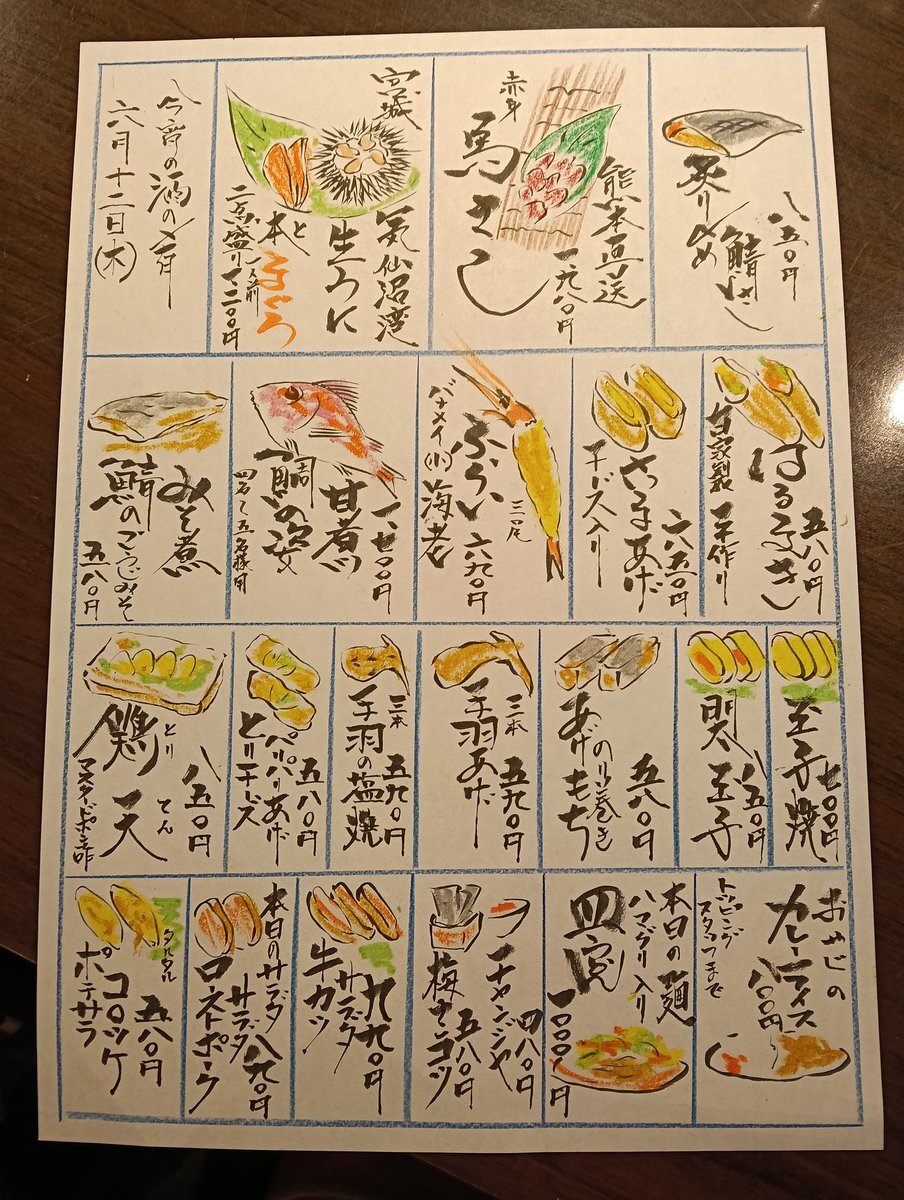 八五〇円
炙り〆め
鯖さし
熊本直送
赤身
馬さし
一、九八〇円
宮城
気仙沼湾
生うに
と
本まぐろ
一人前
二点盛り
今宵の酒の肴
六月十二日(木)
自家製
はるまき
手作り
五八〇円
さつまあげ
チーズ入り
六五〇円
バナメイ(小)海老
ふらい
三尾
六九〇円
鯛の姿
甘煮
四名〜五名様用
鯖のごうじみそ
みそ煮
五八〇円
玉子焼
七〇〇円
閃玉子
八五〇円
あげもち
のり巻き
五八〇円
三本
手羽あげ
五九〇円
三本
手羽の塩焼
五九〇円
パリパリあげ
とりチーズ
五八〇円
鶏天
とり
てん
八五〇円
おやじの
カレーライス
八〇〇円
トッピング
スタッフまで
本日の麺
ハマグリ入り
皿うどん
一、〇〇〇円
チャンジャ
四八〇円
梅ナンコツ
五八〇円
牛カツ
サラダ
九九〇円
本日のサラダ
サラダ
ロースポーク
八九〇円
タルタル
コロッケ
ポテサラ
五八〇円